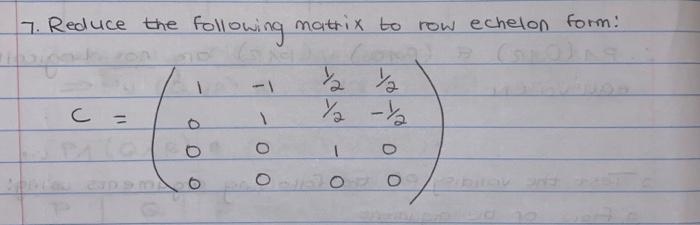 7. Reduce the following matrix to row echelon form:
1 -1 1/2 1/2
C = 0 1 1/2 -1/2
0 0 1 0
0 0 0 0